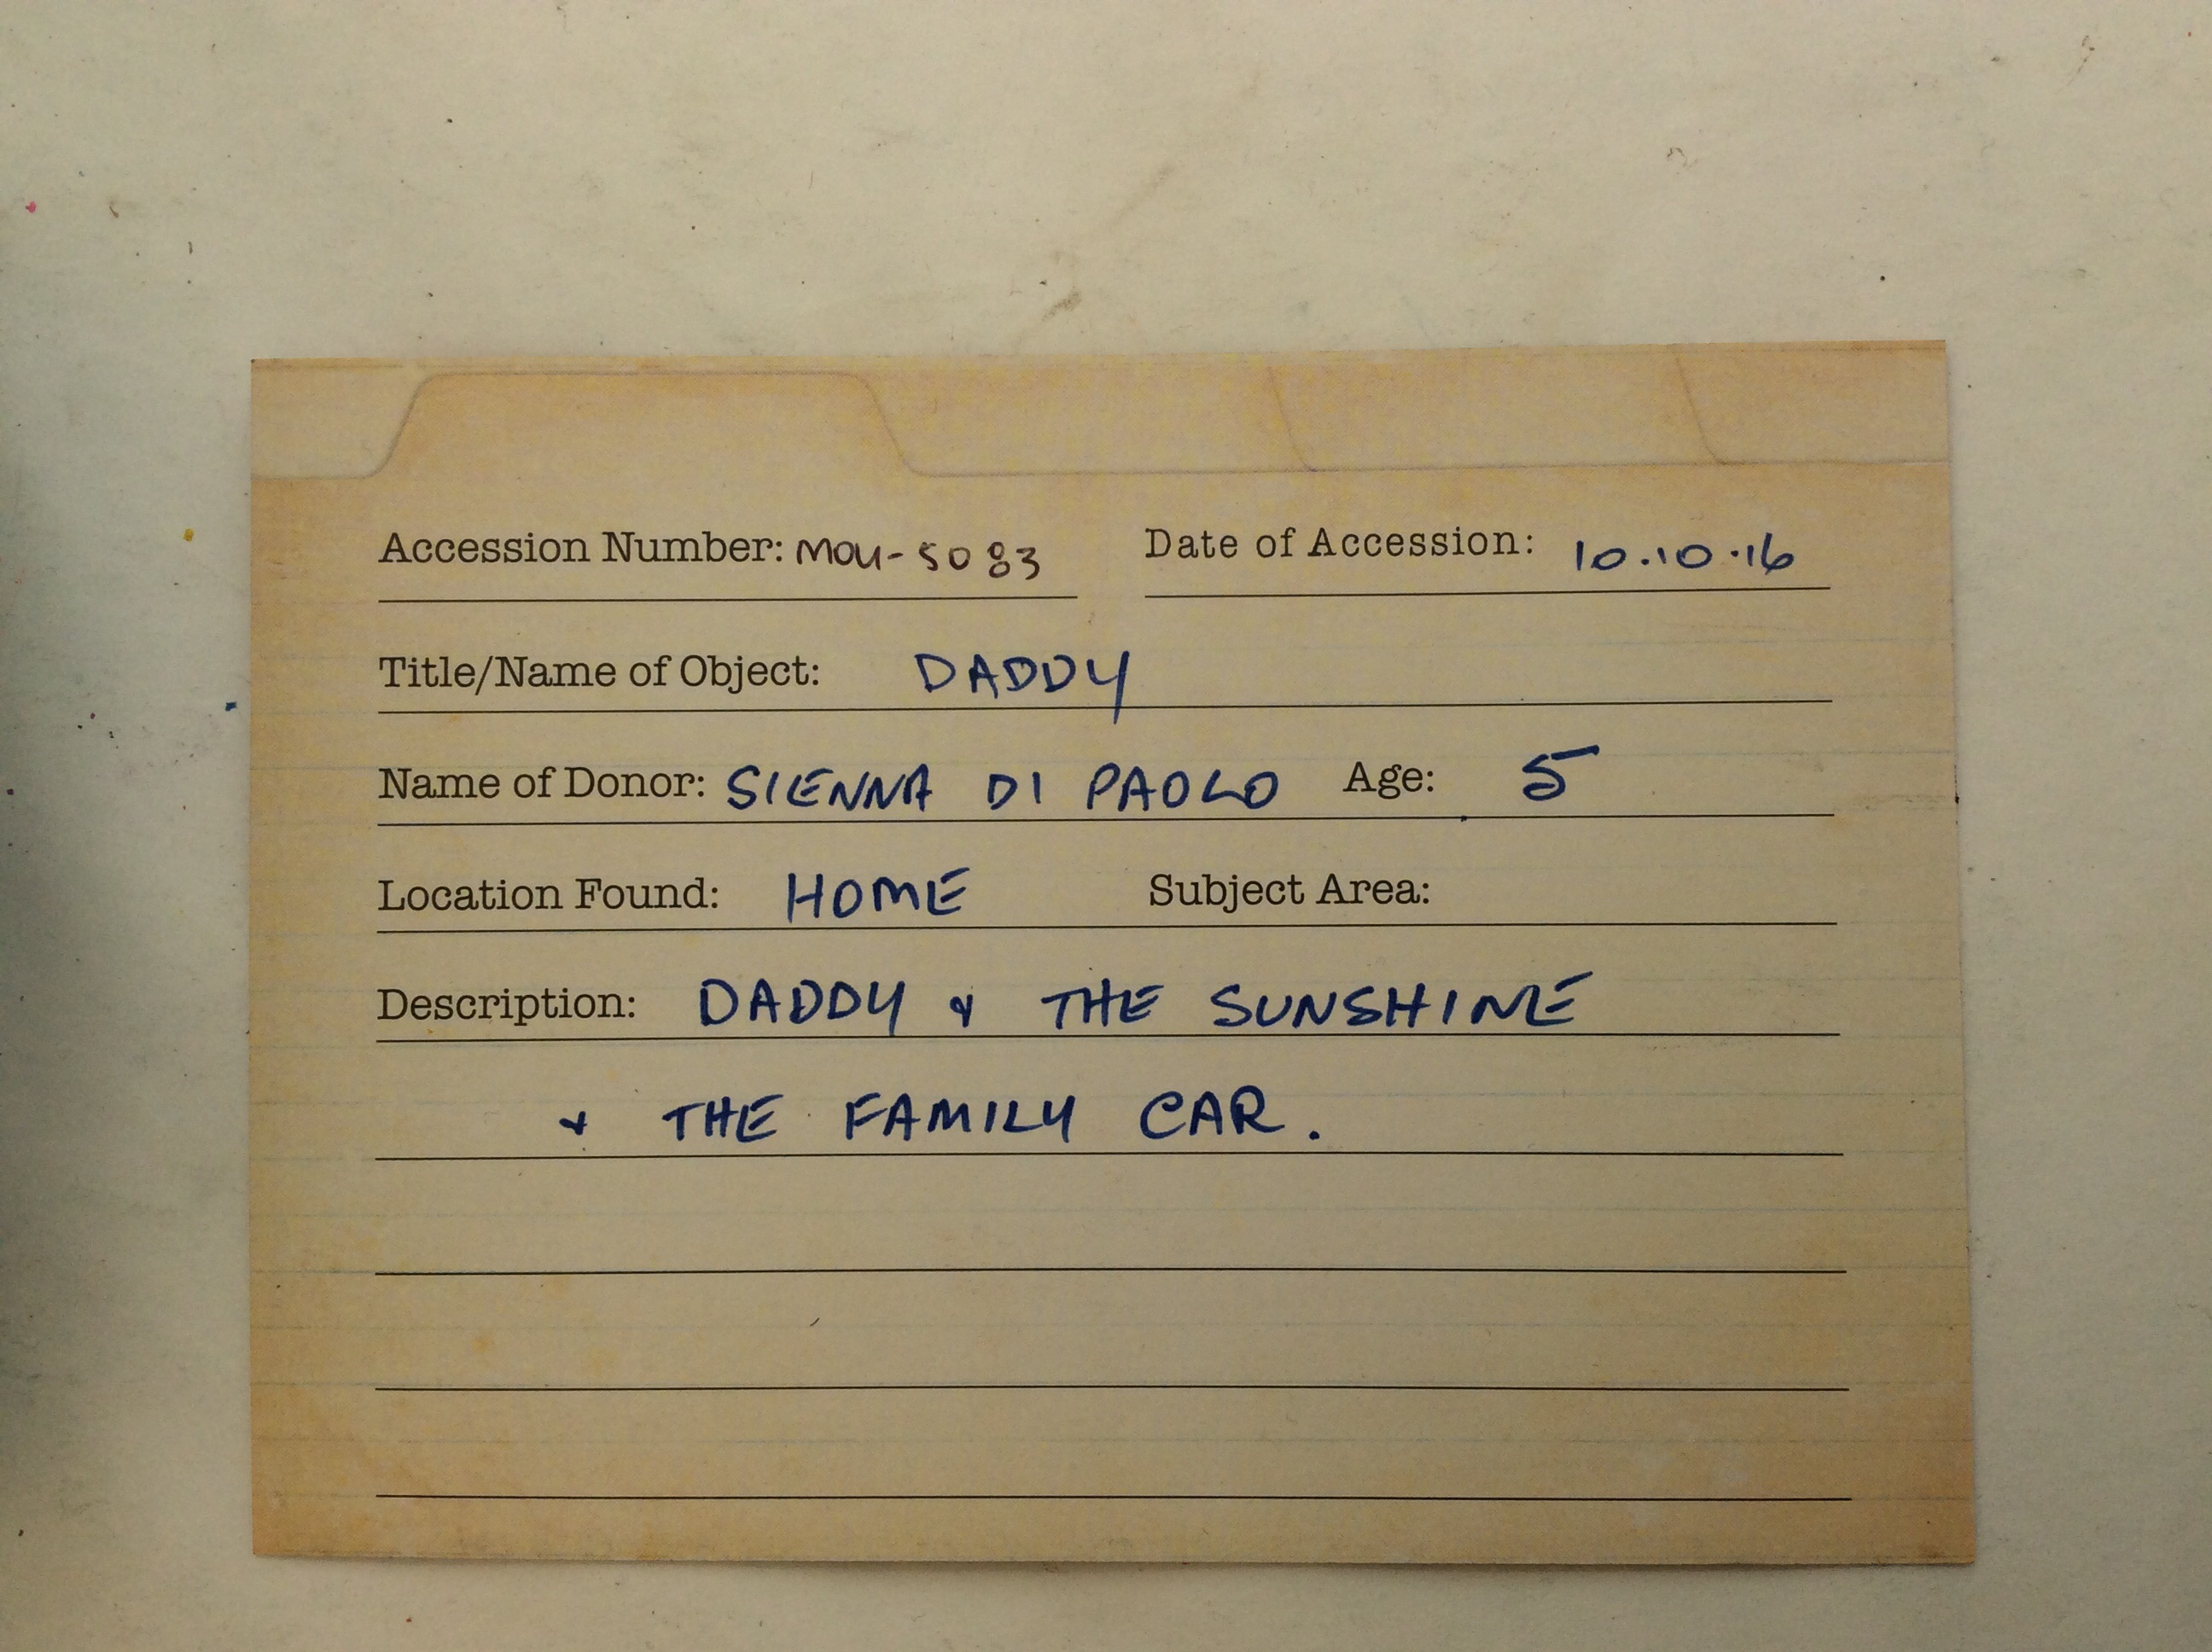 Accession Number: MOU-5083 Date of Accession: 10.10.16
Title/Name of Object: DADDY
Name of Donor: SIENNA DI PAOLO Age: 5
Location Found: HOME Subject Area:
Description: DADDY & THE SUNSHINE
& THE FAMILY CAR.